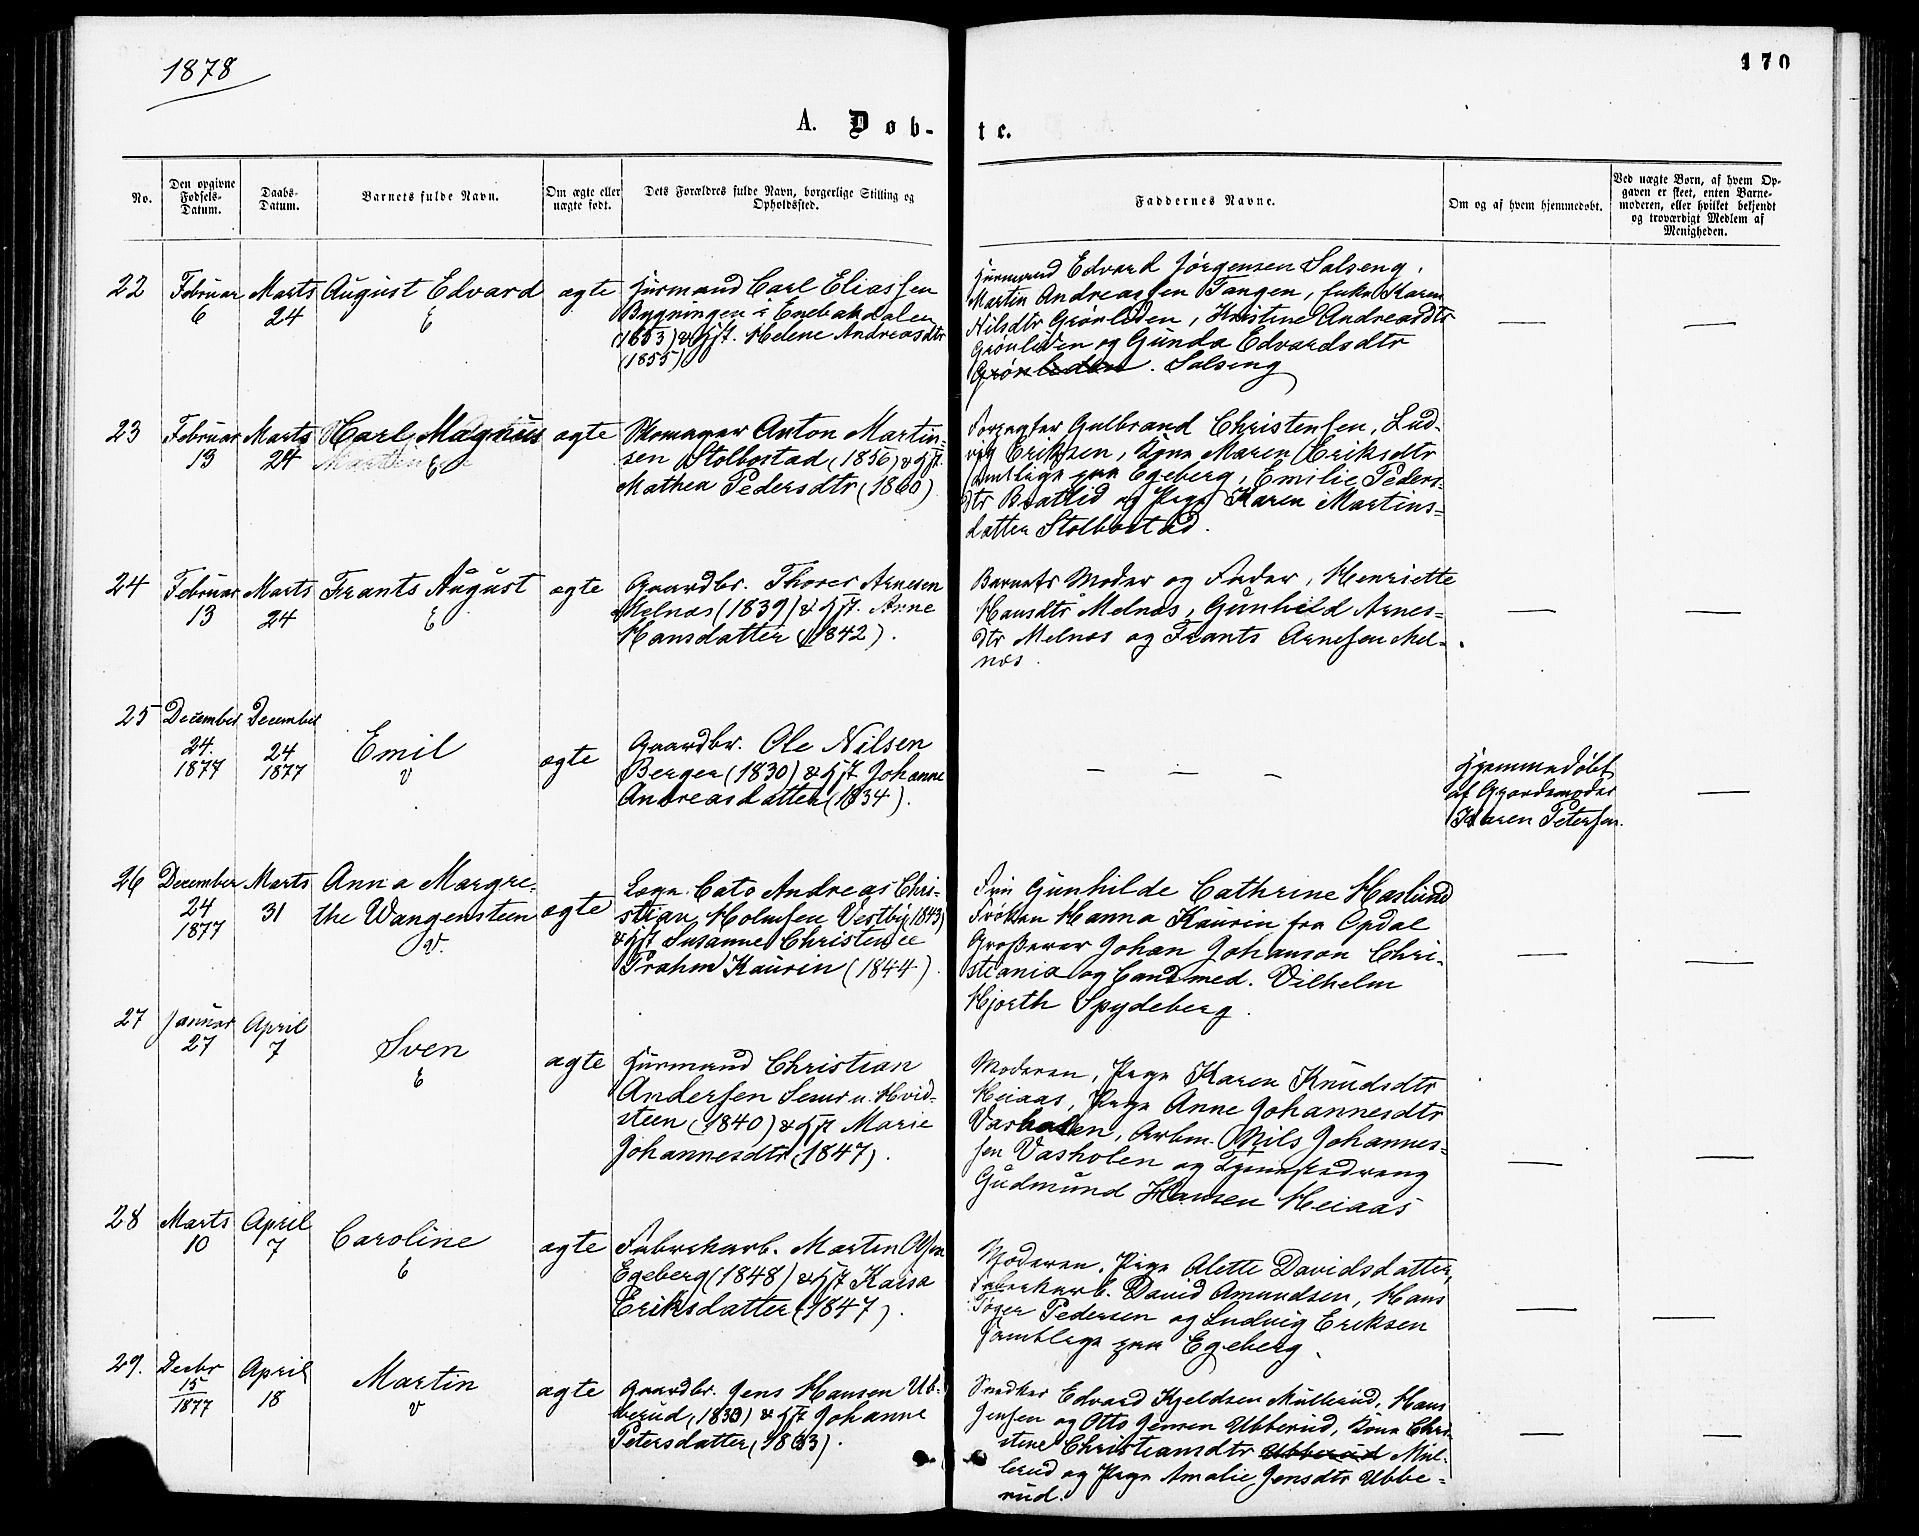 1878
170
A. Døb-
te.
No.
Den opgivne
Fødsels-
Datum.
Daabs-
Datum.
Barnets fulde Navn.
Om ægte eller
uægte født.
Dets Forældres fulde Navn, borgerlige Stilling og
Opholdssted.
Faddernes Navne.
Om og af hvem hjemmedøbt.
Ved uægte Børn, af hvem Op-
gaven er skeet, enten Barne-
moderen, eller hvilket bekjendt
og troværdigt Medlem af
Menigheden.
22
Februar
6
Marts
24
August Edvard
E
ægte
Huusmand Carl Eliassen
Bygningen i Enebakdalen
(1853) & Hst. Helene Andreasdtr
(1855)
Huusmand Edvard Jørgensen Salseng,
Martin Andreassen Tangen, Enke Karen
Nilsdtr Grønliden, Kristine Andreasdtr
Grønliden og Gunda Edvardsdtr
Grønleden. Salseng
23
Februar
13
Marts
24
Karl Magnus
E
ægte
Skomager Anton Martin-
sen Stolbostad (1856) & Hst.
Mathea Pedersdtr (1860)
Forpagter Gulbrand Christensen, Lud-
vig Eriksen, Kone Maren Eriksdtr
samtlige paa Egeberg, Emilie Peders-
dtr Bratlid og Pige Karen Martins-
datter Stolbostad.
24
Februar
13
Marts
24
Frants August
E
ægte
Gaardbr. Thorer Arnesen
Melnæs (1839) & Hst. Anne
Hansdatter (1842).
Barnets Moder og Fader, Henriette
Hansdtr Melnæs, Gunhild Arnes-
dtr Melnæs og Frants Arnesen Mel-
næs.
25
December
24.
1877
December
24
1877
Emil
v
ægte
Gaardbr. Ole Nilsen
Berger (1830) & Hst Johanne
Andreasdatter (1834).
Hjemmedøbt
af Gjordemoder
Karen Petersen.
26
December
24
1877
Marts
31
Anna Margre-
the Wangensteen
v.
ægte
Læge Cato Andreas Chri-
stian Holmsen Vestby (1843)
& Hst Susanne Christense
Prahm Kaurin (1844).
Fru Gunhilde Cathrine Haslund
Frøken Hanna Kaurin fra Opdal
Grosserer Johan Johanson Chri-
stiania og Cand med. Vilhelm
Hjorth Spydeberg.
27
Januar
27
April
7
Sven
E
ægte
Huusmand Christian
Andersen u. Hvid-
steen (1840) & Hst Marie
Johannesdtr (1847).
Moderen, Pige Karen Knudsdtr
Heiaas, Pige Anne Johannesdtr
Vasholen, Arbm. Nils Johannes-
sen Vasholen og Tjenestedreng
Gudmund Hansen Heiaas
28
Marts
10
April
7
Caroline
E
ægte
Fabrikarb. Martin Olsen
Egeberg (1848) & Hst Kaisa
Eriksdatter (1847).
Moderen, Pige Alette Davidsdatter,
Fabrikarb. David Amundsen, Hans
Tøger Pedersen og Ludvig Eriksen
samtlige paa Egeberg.
29.
Decbr
15
1877
April
18
Martin
v
ægte
Gaardbr. Jens Hansen Ub-
berud, (1833) & Hst Johanne
Petersdatter, (1833).
Snedker Edvard Kjeldsen Müllerud, Hans
Jensen og Otto Jensen Ubberud, Kone Chri-
stine Christiansdtr Ubberud Mül-
lerud og Pige Amalie Jensdtr Ubbe-
rud.